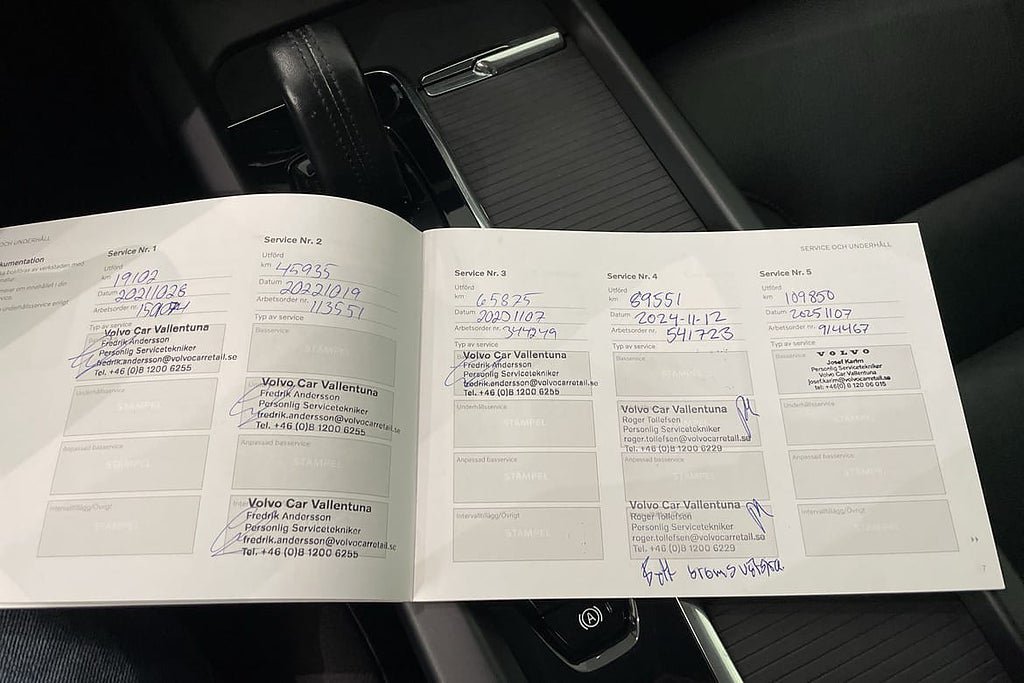 OCH UNDERHÅLL
Service Nr. 1
Utförd
km 19102
Datum 20211028
Arbetsorder nr.
Typ av service
Volvo Car Vallentuna
Fredrik Andersson
Personlig Servicetekniker
fredrik.andersson@volvocarretail.se
Tel. +46 (0)8 1200 6255
Underhållsservice
STÄMPEL
Anpassad basservice
STÄMPEL
Intervalltillägg/Övrigt
STÄMPEL
Service Nr. 2
Utförd
km 45935
Datum 20221019
Arbetsorder nr. 113551
Typ av service
Basservice
STÄMPEL
Volvo Car Vallentuna
Fredrik Andersson
Personlig Servicetekniker
fredrik.andersson@volvocarretail.se
Tel. +46 (0)8 1200 6255
Anpassad basservice
STÄMPEL
Volvo Car Vallentuna
Fredrik Andersson
Personlig Servicetekniker
fredrik.andersson@volvocarretail.se
Tel. +46 (0)8 1200 6255
SERVICE OCH UNDERHÅLL
Service Nr. 3
Utförd
km 65875
Datum 20231107
Arbetsorder nr. 344249
Typ av service
Volvo Car Vallentuna
Fredrik Andersson
Personlig Servicetekniker
fredrik.andersson@volvocarretail.se
Tel. +46 (0)8 1200 6255
Underhållsservice
STÄMPEL
Anpassad basservice
STÄMPEL
Intervalltillägg/Övrigt
STÄMPEL
Service Nr. 4
Utförd
km 89551
Datum 2024-11-12
Arbetsorder nr. 541723
Typ av service
Basservice
STÄMPEL
Volvo Car Vallentuna
Roger Tollefsen
Personlig Servicetekniker
roger.tollefsen@volvocarretail.se
Tel. +46 (0)8 1200 6229
Anpassad basservice
STÄMPEL
Volvo Car Vallentuna
Roger Tollefsen
Personlig Servicetekniker
roger.tollefsen@volvocarretail.se
Tel. +46 (0)8 1200 6229
Bytt bromsvätska
Service Nr. 5
Utförd
km 109850
Datum 20251107
Arbetsorder nr. 914467
Typ av service
Basservice
VOLVO
Josef Karim
Personlig Servicetekniker
Volvo Car Vallentuna
josef.karim@volvocarretail.se
tel: +46(0)8 120 06 015
Underhållsservice
STÄMPEL
Anpassad basservice
STÄMPEL
Intervalltillägg/Övrigt
STÄMPEL
7
A